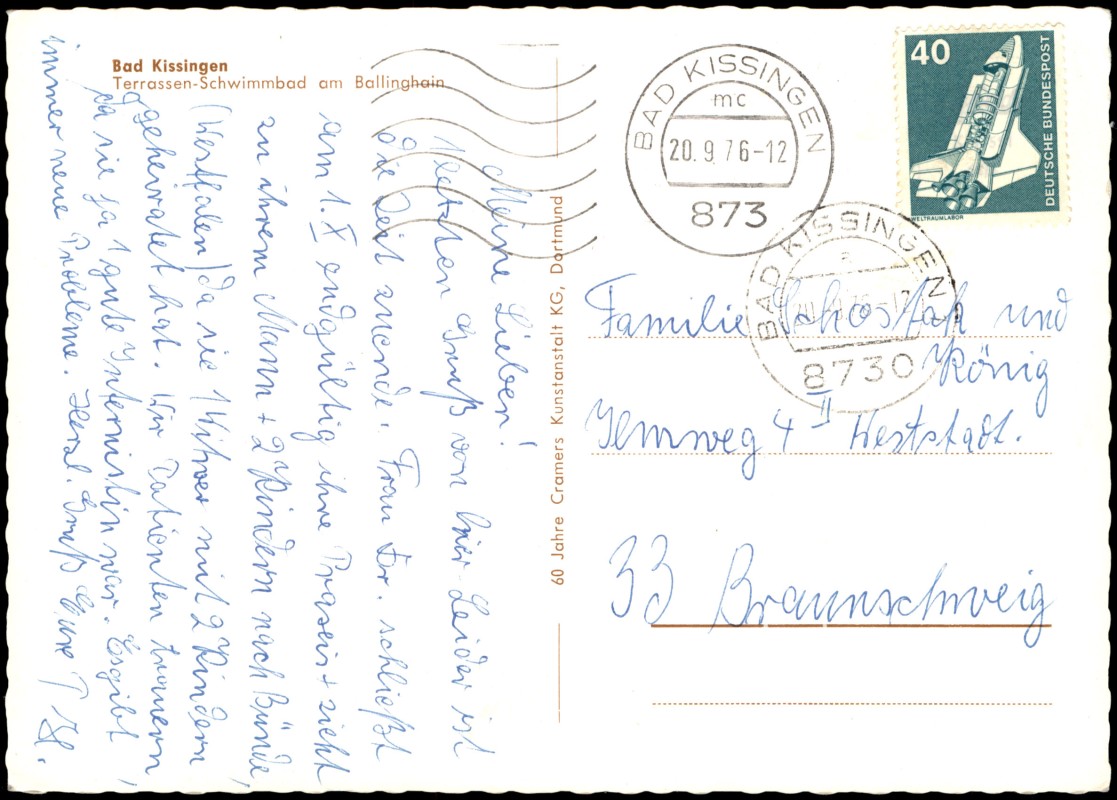 Bad Kissingen
Terrassen-Schwimmbad am Ballinghain
Meine Lieben!
1 letzten Gruß von hier. Leider ist
die Zeit zuende. Frau Dr. schließt
am 1. X endgültig ihre Praxis + zieht
zu ihrem Mann + 2 Kindern nach Bünde,
(Westfalen) da sie 1 Witwer mit 2 Kindern
geheiratet hat. Wir Patienten trauern,
da sie ja 1 gute Internistin war. Es gibt
immer neue Probleme. Herzl. Gruß Eure T
60 Jahre Cramers Kunstanstalt KG, Dortmund
BAD KISSINGEN
mc
20.9.76-12
873
BAD KISSINGEN
8730
40
DEUTSCHE BUNDESPOST
WELTRAUMLABOR
Familie Schostak und
König
Ilmweg 4 II Weststadt.
33 Braunschweig